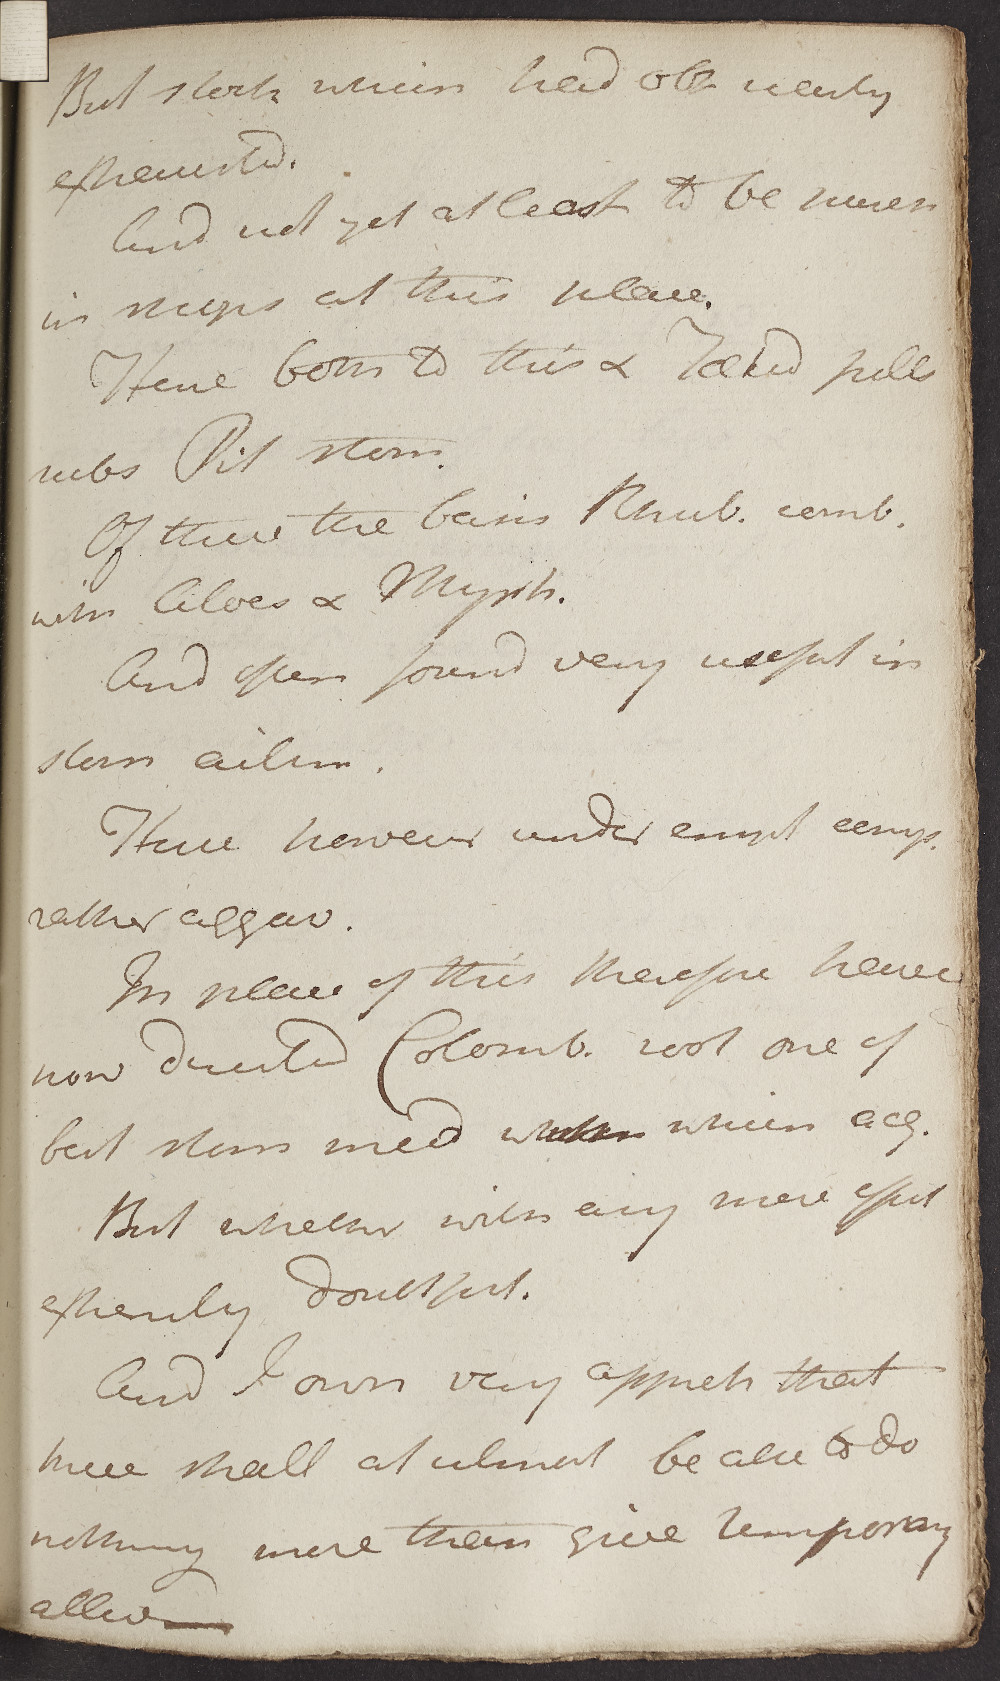 But stock which had obt nearly
exhausted.
And not yet at least to be
in shops at this place.
Have both to this & Foetid pills
subs Pil stom.
Of these the basis Rhub. comb.
with Aloes & Myrrh.
And often found very useful in
stom ailm.
Have however under empt
rather aggrav.
In place of this therefore have
now directed Colomb. root one of
best stom med which acq.
But whether with any more effect
extremly doubtful.
And I own very appreh that
here shall at utmost be able to do
nothing more than give temporary
allev